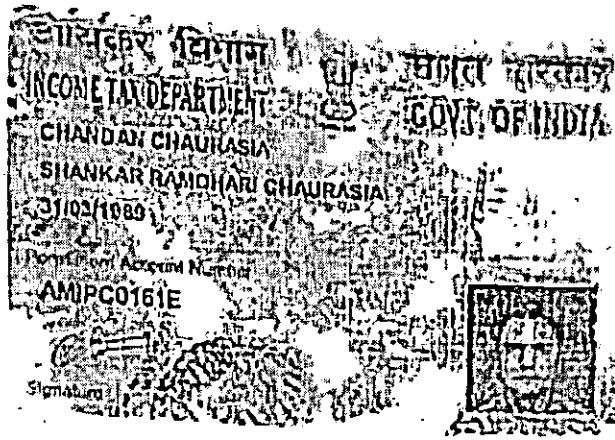 आयकर विभाग
भारत सरकार
INCOME TAX DEPARTMENT
GOVT. OF INDIA
CHANDAN CHAURASIA
SHANKAR RAMDHARI CHAURASIA
Permanent Account Number
AMIPC0161E
Signature